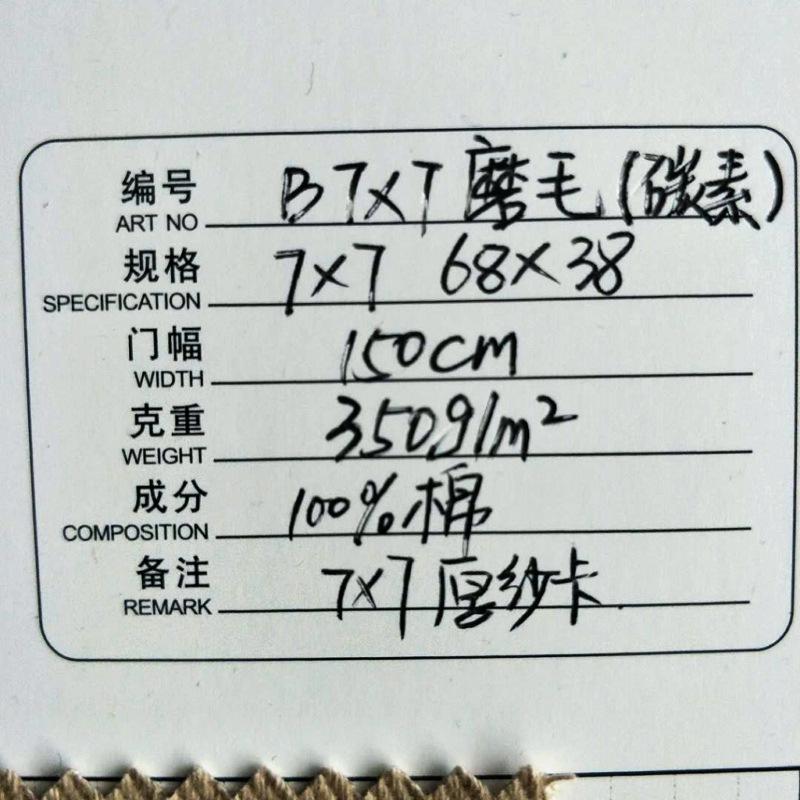 编号 B7×7磨毛(碳素)
ART NO
规格 7×7 68×38
SPECIFICATION
门幅 150cm
WIDTH
克重 350g/m²
WEIGHT
成分 100%棉
COMPOSITION
备注 7×7厚纱卡
REMARK